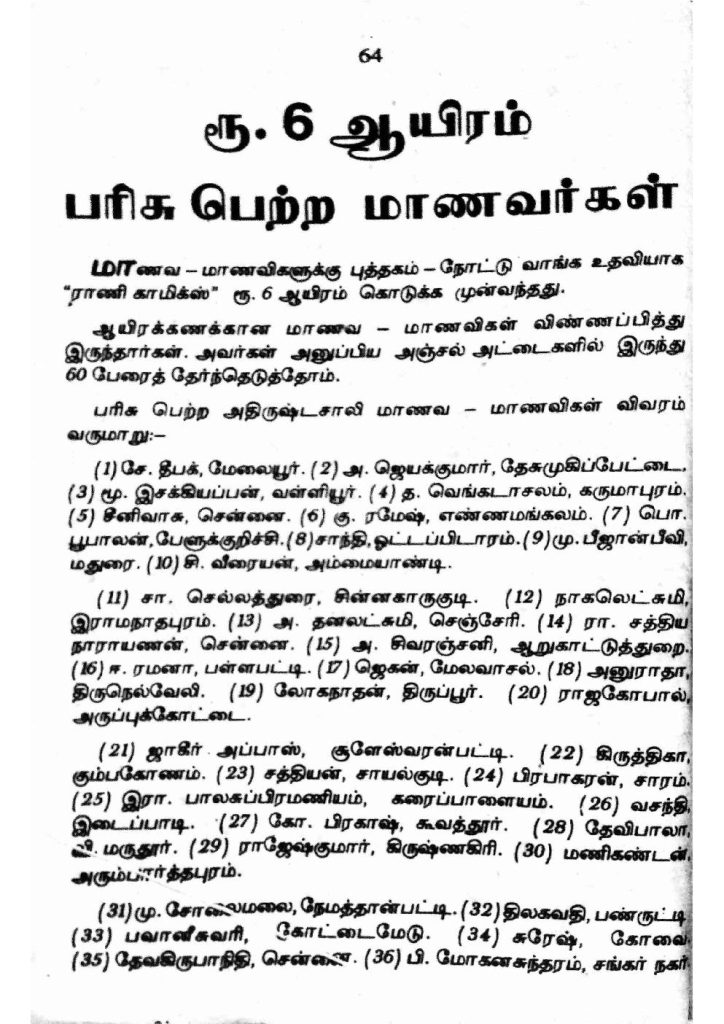 64
ரூ. 6 ஆயிரம்
பரிசு பெற்ற மாணவர்கள்
மாணவ – மாணவிகளுக்கு புத்தகம் – நோட்டு வாங்க உதவியாக
"ராணி காமிக்ஸ்" ரூ. 6 ஆயிரம் கொடுக்க முன்வந்தது.
ஆயிரக்கணக்கான மாணவ – மாணவிகள் விண்ணப்பித்து
இருந்தார்கள். அவர்கள் அனுப்பிய அஞ்சல் அட்டைகளில் இருந்து
60 பேரைத் தேர்ந்தெடுத்தோம்.
பரிசு பெற்ற அதிருஷ்டசாலி மாணவ – மாணவிகள் விவரம்
வருமாறு:–
(1) சே. தீபக், மேலையூர். (2) அ. ஜெயக்குமார், தேசுமுகிப்பேட்டை.
(3) மூ. இசக்கியப்பன், வள்ளியூர். (4) த. வெங்கடாசலம், கருமாபுரம்.
(5) சீனிவாசு, சென்னை. (6) கு. ரமேஷ், எண்ணமங்கலம். (7) பொ.
பூபாலன், பேளுக்குறிச்சி. (8) சாந்தி, ஓட்டப்பிடாரம். (9) மு. பீஜான்பீவி,
மதுரை. (10) சி. வீரையன், அம்மையாண்டி.
(11) சா. செல்லத்துரை, சின்னகாருகுடி. (12) நாகலெட்சுமி,
இராமநாதபுரம். (13) அ. தனலட்சுமி, செஞ்சேரி. (14) ரா. சத்திய
நாராயணன், சென்னை. (15) அ. சிவரஞ்சனி, ஆறுகாட்டுத்துறை.
(16) ஈ. ரமனா, பள்ளபட்டி. (17) ஜெகன், மேலவாசல். (18) அனுராதா,
திருநெல்வேலி. (19) லோகநாதன், திருப்பூர். (20) ராஜகோபால்,
அருப்புக்கோட்டை.
(21) ஜாகீர் அப்பாஸ், சூளேஸ்வரன்பட்டி. (22) கிருத்திகா,
கும்பகோணம். (23) சத்தியன், சாயல்குடி. (24) பிரபாகரன், சாரம்.
(25) இரா. பாலசுப்பிரமணியம், கரைப்பாளையம். (26) வசந்தி,
இடைப்பாடி. (27) கோ. பிரகாஷ், கூவத்தூர். (28) தேவிபாலா,
வி. மருதூர். (29) ராஜேஷ்குமார், கிருஷ்ணகிரி. (30) மணிகண்டன்,
அரும்பார்த்தபுரம்.
(31) மு. சோலைமலை, நேமத்தான்பட்டி. (32) திலகவதி, பண்ருட்டி
(33) பவானீசுவரி, கோட்டைமேடு. (34) சுரேஷ், கோவை
(35) தேவகிருபாநிதி, சென்னை. (36) பி. மோகனசுந்தரம், சங்கர் நகர்